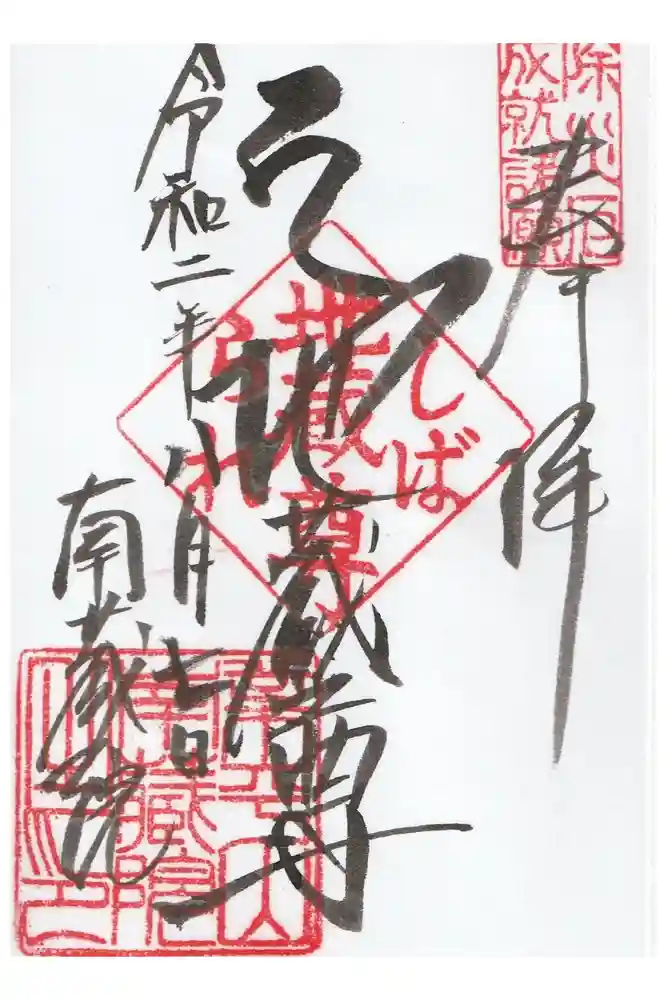 奉拝
成就諸願
地蔵尊
しば
地蔵尊
られ
令和二年八月七日
南蔵院
南蔵院